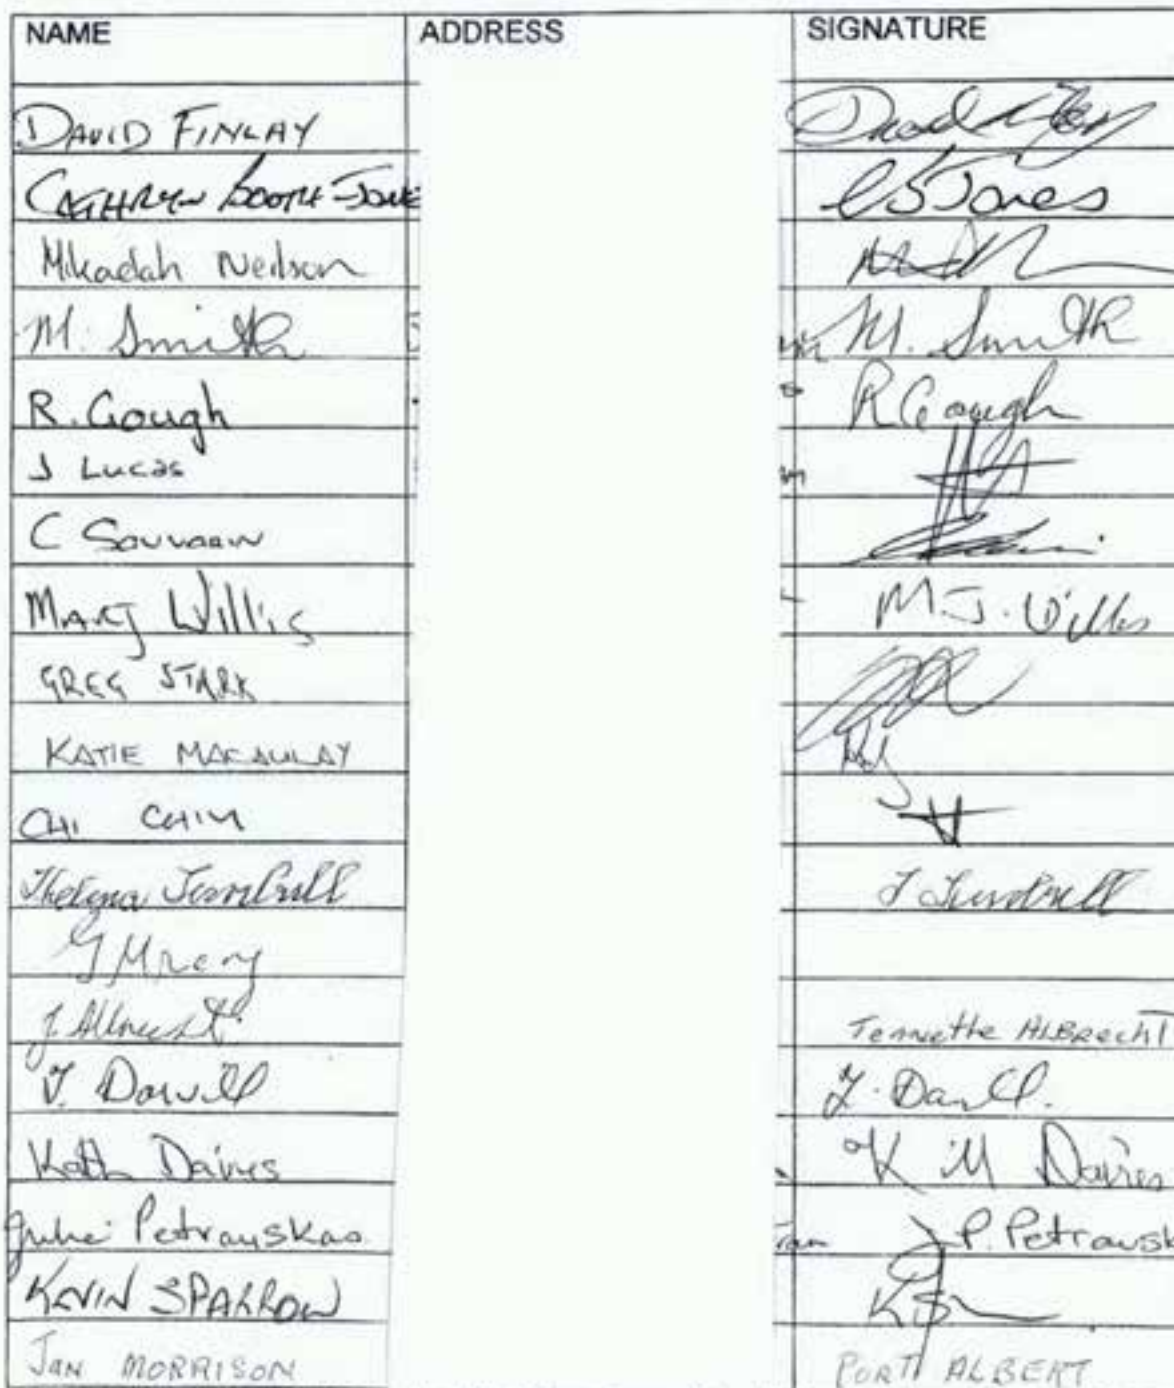 NAME ADDRESS SIGNATURE
DAVID FINLAY
CATHRYN BOOTH-JONE CBJones
Mikaelah Neilson
M. Smith M. Smith
R. Gough R Gough
J Lucas
C
Marj Willis M.J. Willis
GREG STARK
KATIE MACAULAY
CHI CHIM
Thelma Turnbull T Turnbull
G
J. Albrecht Jennette ALBRECHT
Y. Darvill Y. Darvill.
Kath Daires K M Daires
Julie Petrauskas J P. Petrausk
KEVIN SPARROW
JAN MORRISON PORT ALBERT